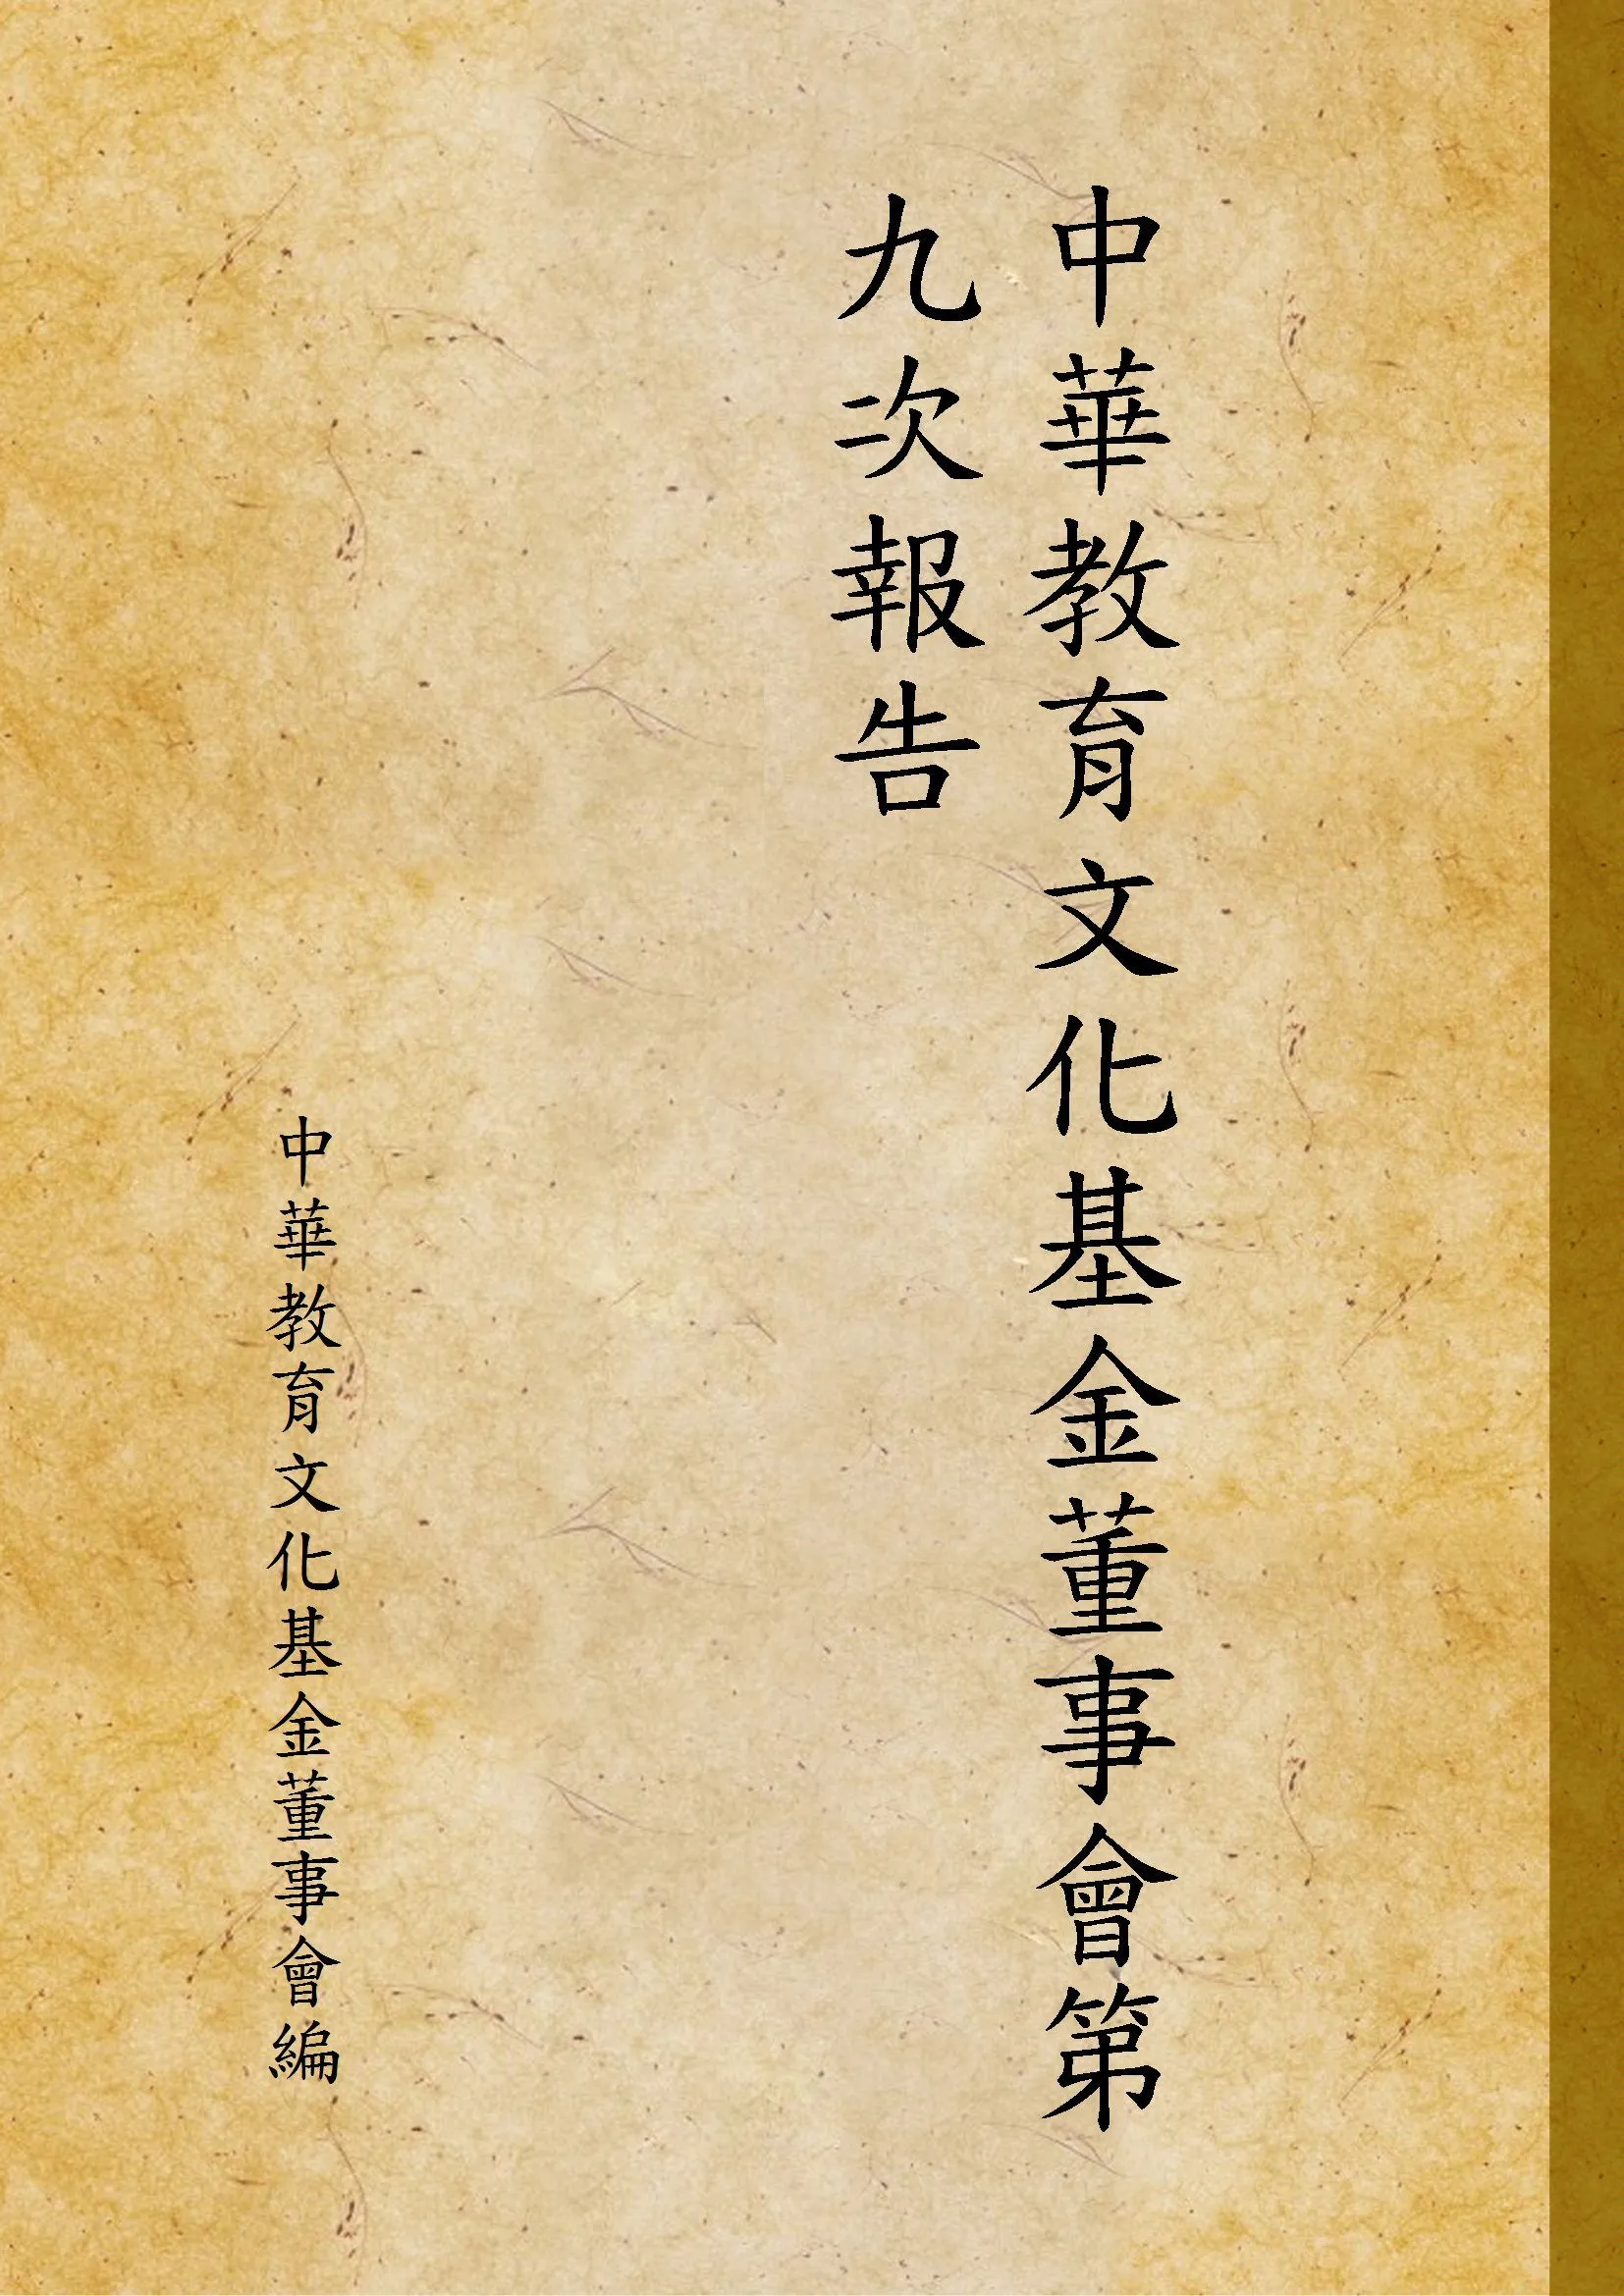 中華教育文化基金董事會第
九次報告
中華教育文化基金董事會編